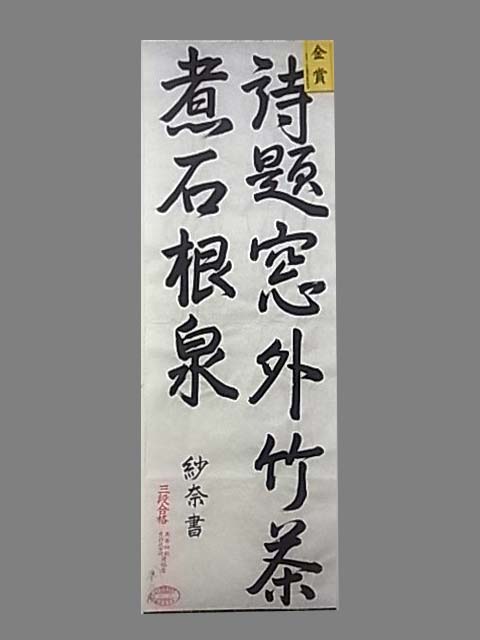 金賞
詩題窓外竹茶
煮石根泉
紗奈書
三段合格